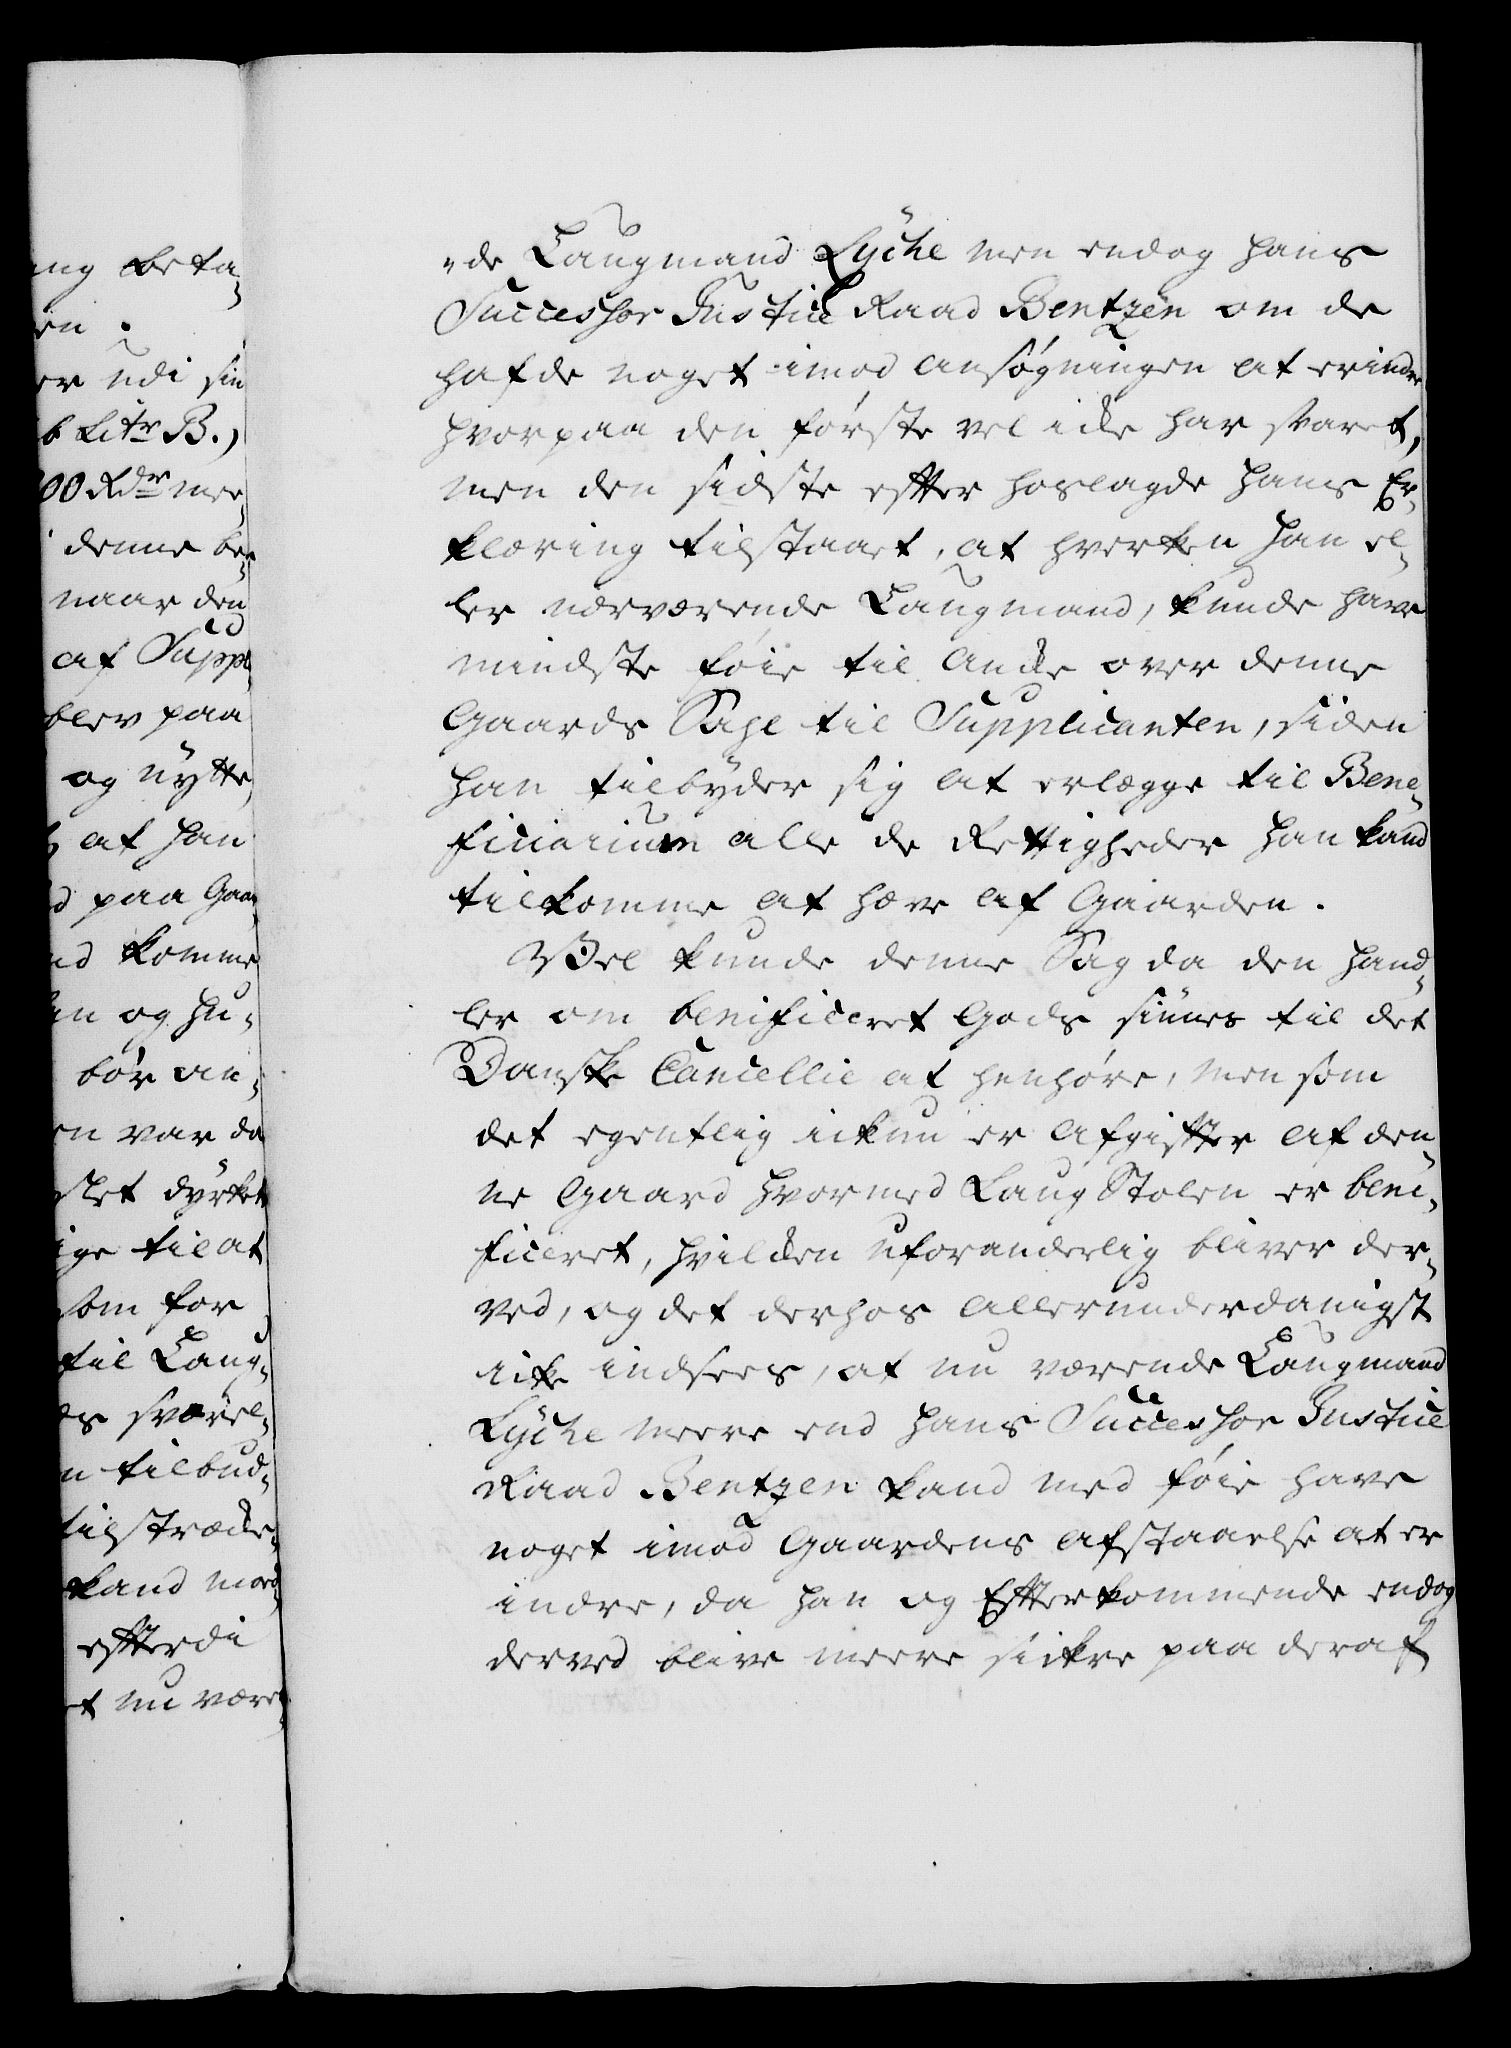 ng beta-
en.
er udi sin
b Litr B.)
00 Rdr mee
denne be-
naar den
af Suppl
blev paa
og nytte
at han
d paa Gaar
nd komme
n og Hu-
bør an-
en var da
slet dyrket
ige til at
som for
til Laug-
es sværel-
n tilbud-
tilstrække-
kand med
efftterdi
et nu være-
-de Laugmand Lyche men endog hans
Successor Justice Raad Bentzen om de
hafde noget imod ansøgningen at erindre
hvorpaa den første vel icke har svaret,
men den sidste efter hoslagde hans Er-
klæring tilstaaet, at hverken han el-
ler nærværende Laugmand, kunde have
mindste føie til Ancke over denne
Gaards Salg til Supplicanten, siden
han tilbyder sig at erlægge til Bene-
ficiarium alle de Rettigheder han kand
tilkomme at hæve af Gaarden.
Vel kunde denne Sag da den hand-
ler om benificeret Gods siunes til det
Danske Cancellie at henhøre, men som
det egentlig ickun er Afgifter af den-
ne Gaard hvormed Laug Stolen er beni-
ficeret, hvilcken uforanderlig bliver der-
ved, og det derhos allerunderdanigst
icke indsees, at nu værende Laugmand
Lyche meere end hans Successor Justice
Raad Bentzen kand med føie have
noget imod Gaardens afstaaelse at er
indre, da han og Efterkommende endog
derved blive meere sickre paa deraf